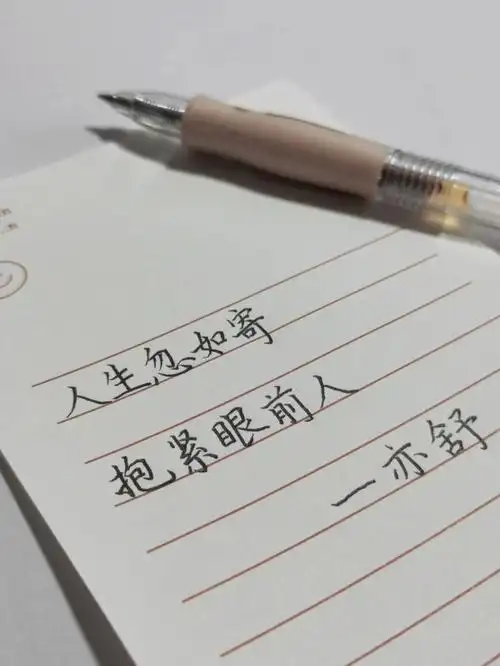 人生忽如寄
抱紧眼前人
—亦舒